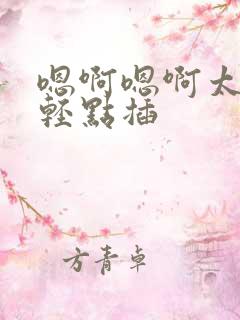 嗯啊嗯啊太
輕點插
方青卓